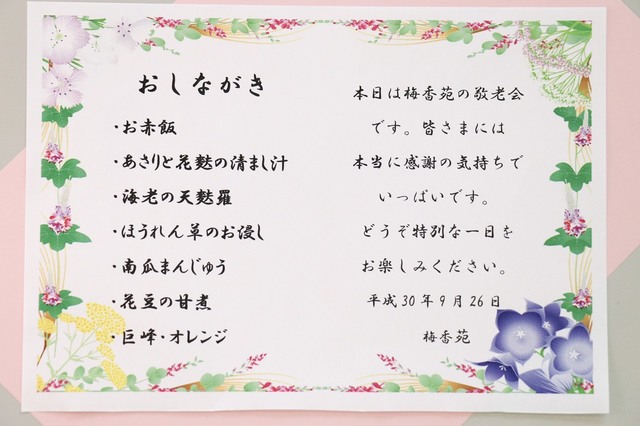 おしながき
・お赤飯
・あさりと花麩の清まし汁
・海老の天麩羅
・ほうれん草のお浸し
・南瓜まんじゅう
・花豆の甘煮
・巨峰・オレンジ
本日は梅香苑の敬老会
です。皆さまには
本当に感謝の気持ちで
いっぱいです。
どうぞ特別な一日を
お楽しみください。
平成30年9月26日
梅香苑